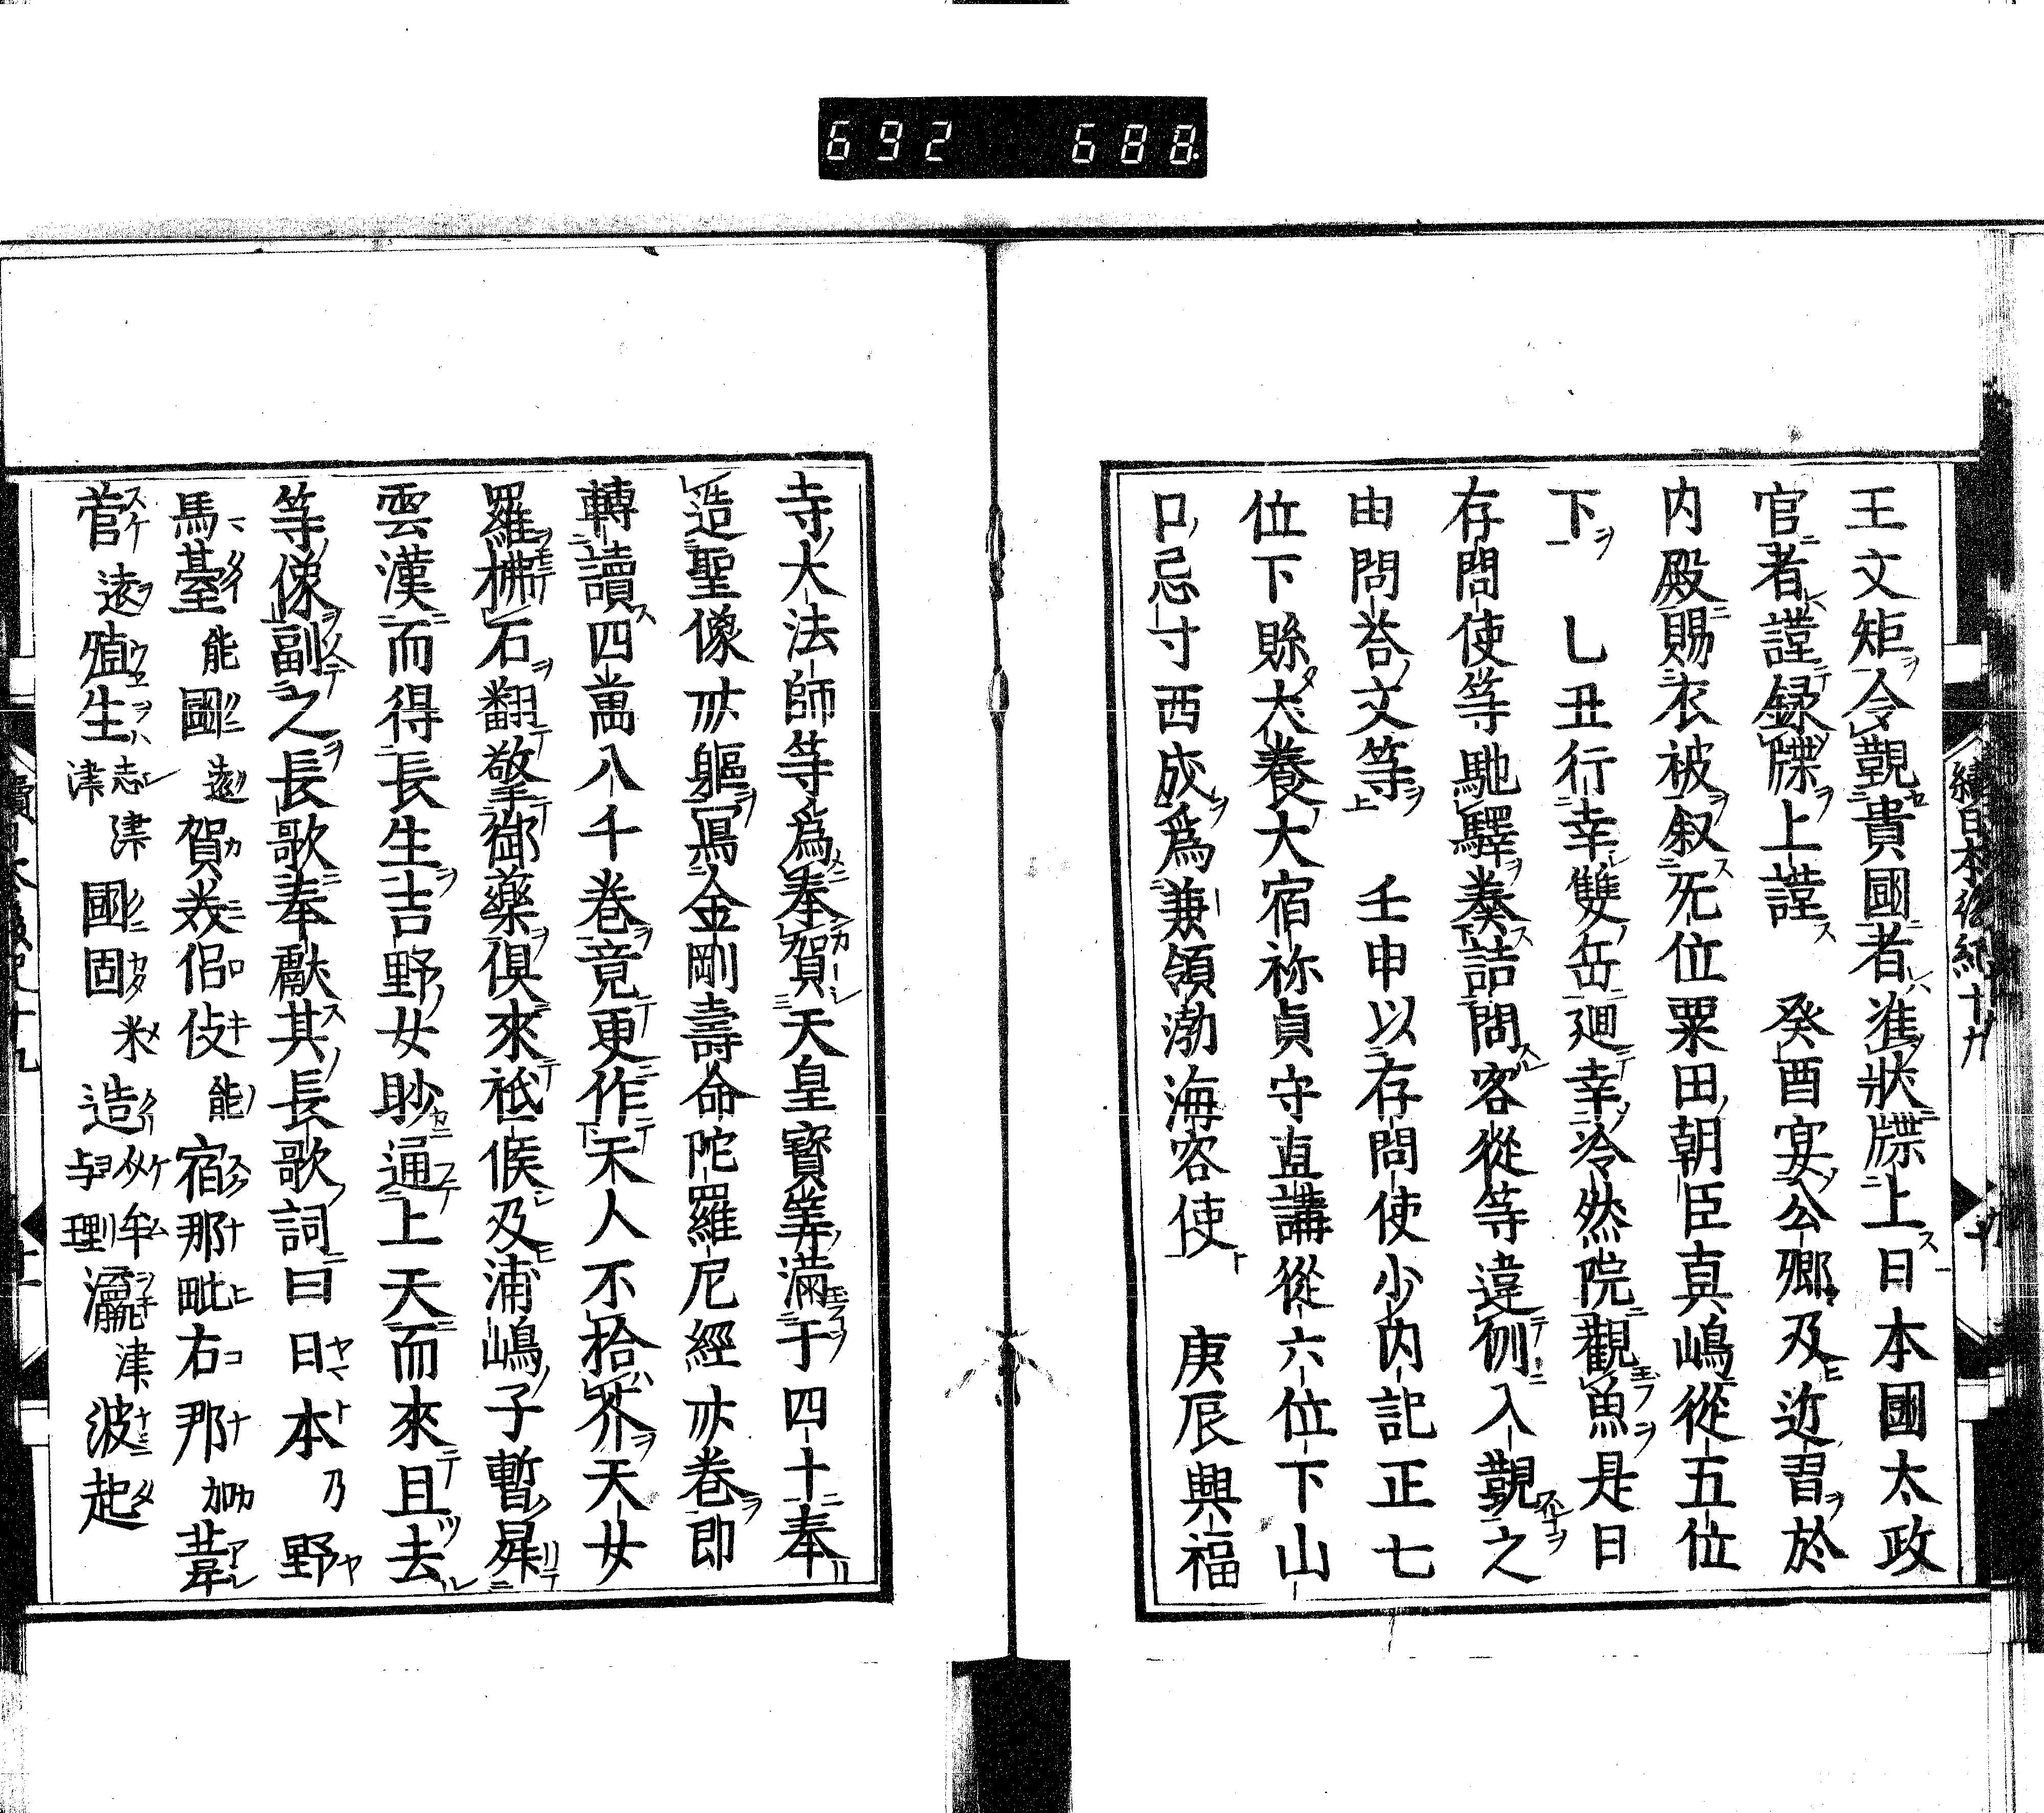 692 688
王文矩令覲貴國者進狀牒上日本國太政
官者謹録牒上謹 癸酉宴公卿及近習於
内殿賜衣被叙无位粟田朝臣真嶋從五位
下 乚丑行幸雙岳廻幸冷然院觀魚是日
存問使等馳驛奏詰問客從等違例入覲之
由問荅文等 壬申以存問使少内記正七
位下縣犬養大宿祢貞守直講從六位下山
口忌寸西成爲兼領渤海客使 庚辰興福
寺大法師等爲奉賀天皇寶筭滿于四十奉
造聖像卌軀寫金剛壽命陀羅尼經卌卷即
轉讀四萬八千卷竟更作天人不拾芥天女
羅拂石翻擎御藥俱來祗候及浦嶋子暫昇
雲漢而得長生吉野女眇通上天而來且去
等像副之長歌奉獻其長歌詞曰 日本乃野
馬臺能國遠賀美侶伎能宿那毗古那加葦
菅遠殖生志津津國固米造介牟与理瀛津波起